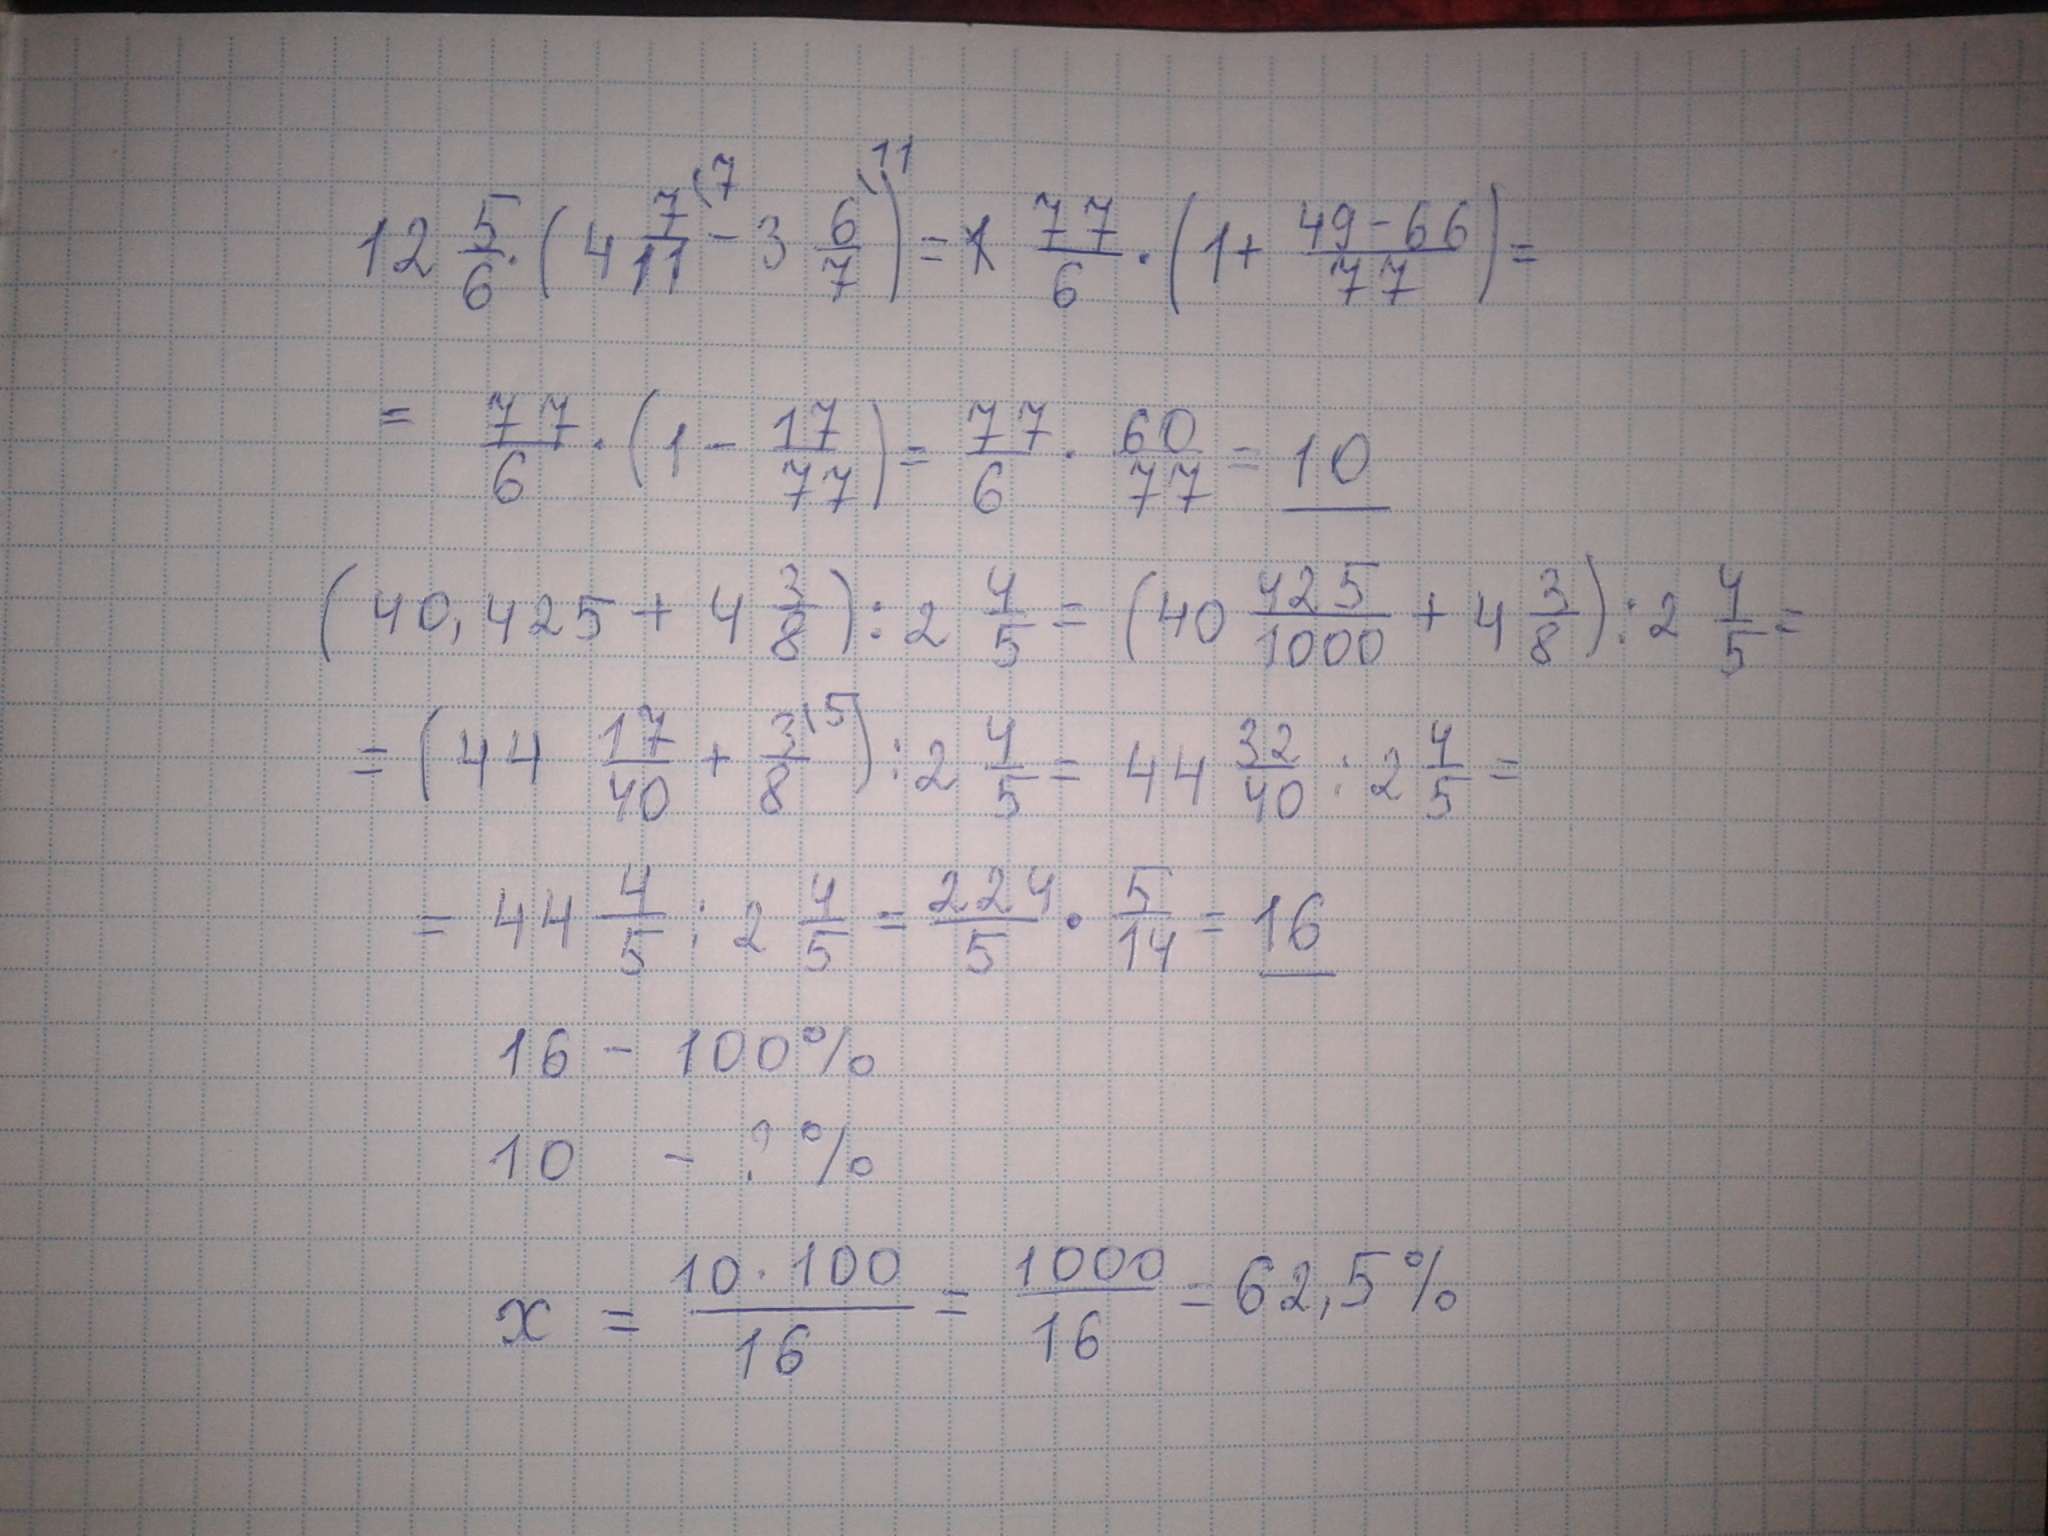 12 5/6 · (4 7/11 (7 - 3 6/7 (11) = 77/6 · (1 + 49-66/77) =
= 77/6 · (1 - 17/77) = 77/6 · 60/77 = 10
(40,425 + 4 3/8) : 2 4/5 = (40 425/1000 + 4 3/8) : 2 4/5 =
= (44 17/40 + 3/8 (5) : 2 4/5 = 44 32/40 : 2 4/5 =
= 44 4/5 : 2 4/5 = 224/5 · 5/14 = 16
16 - 100%
10 - ? %
x = 10·100/16 = 1000/16 = 62,5%